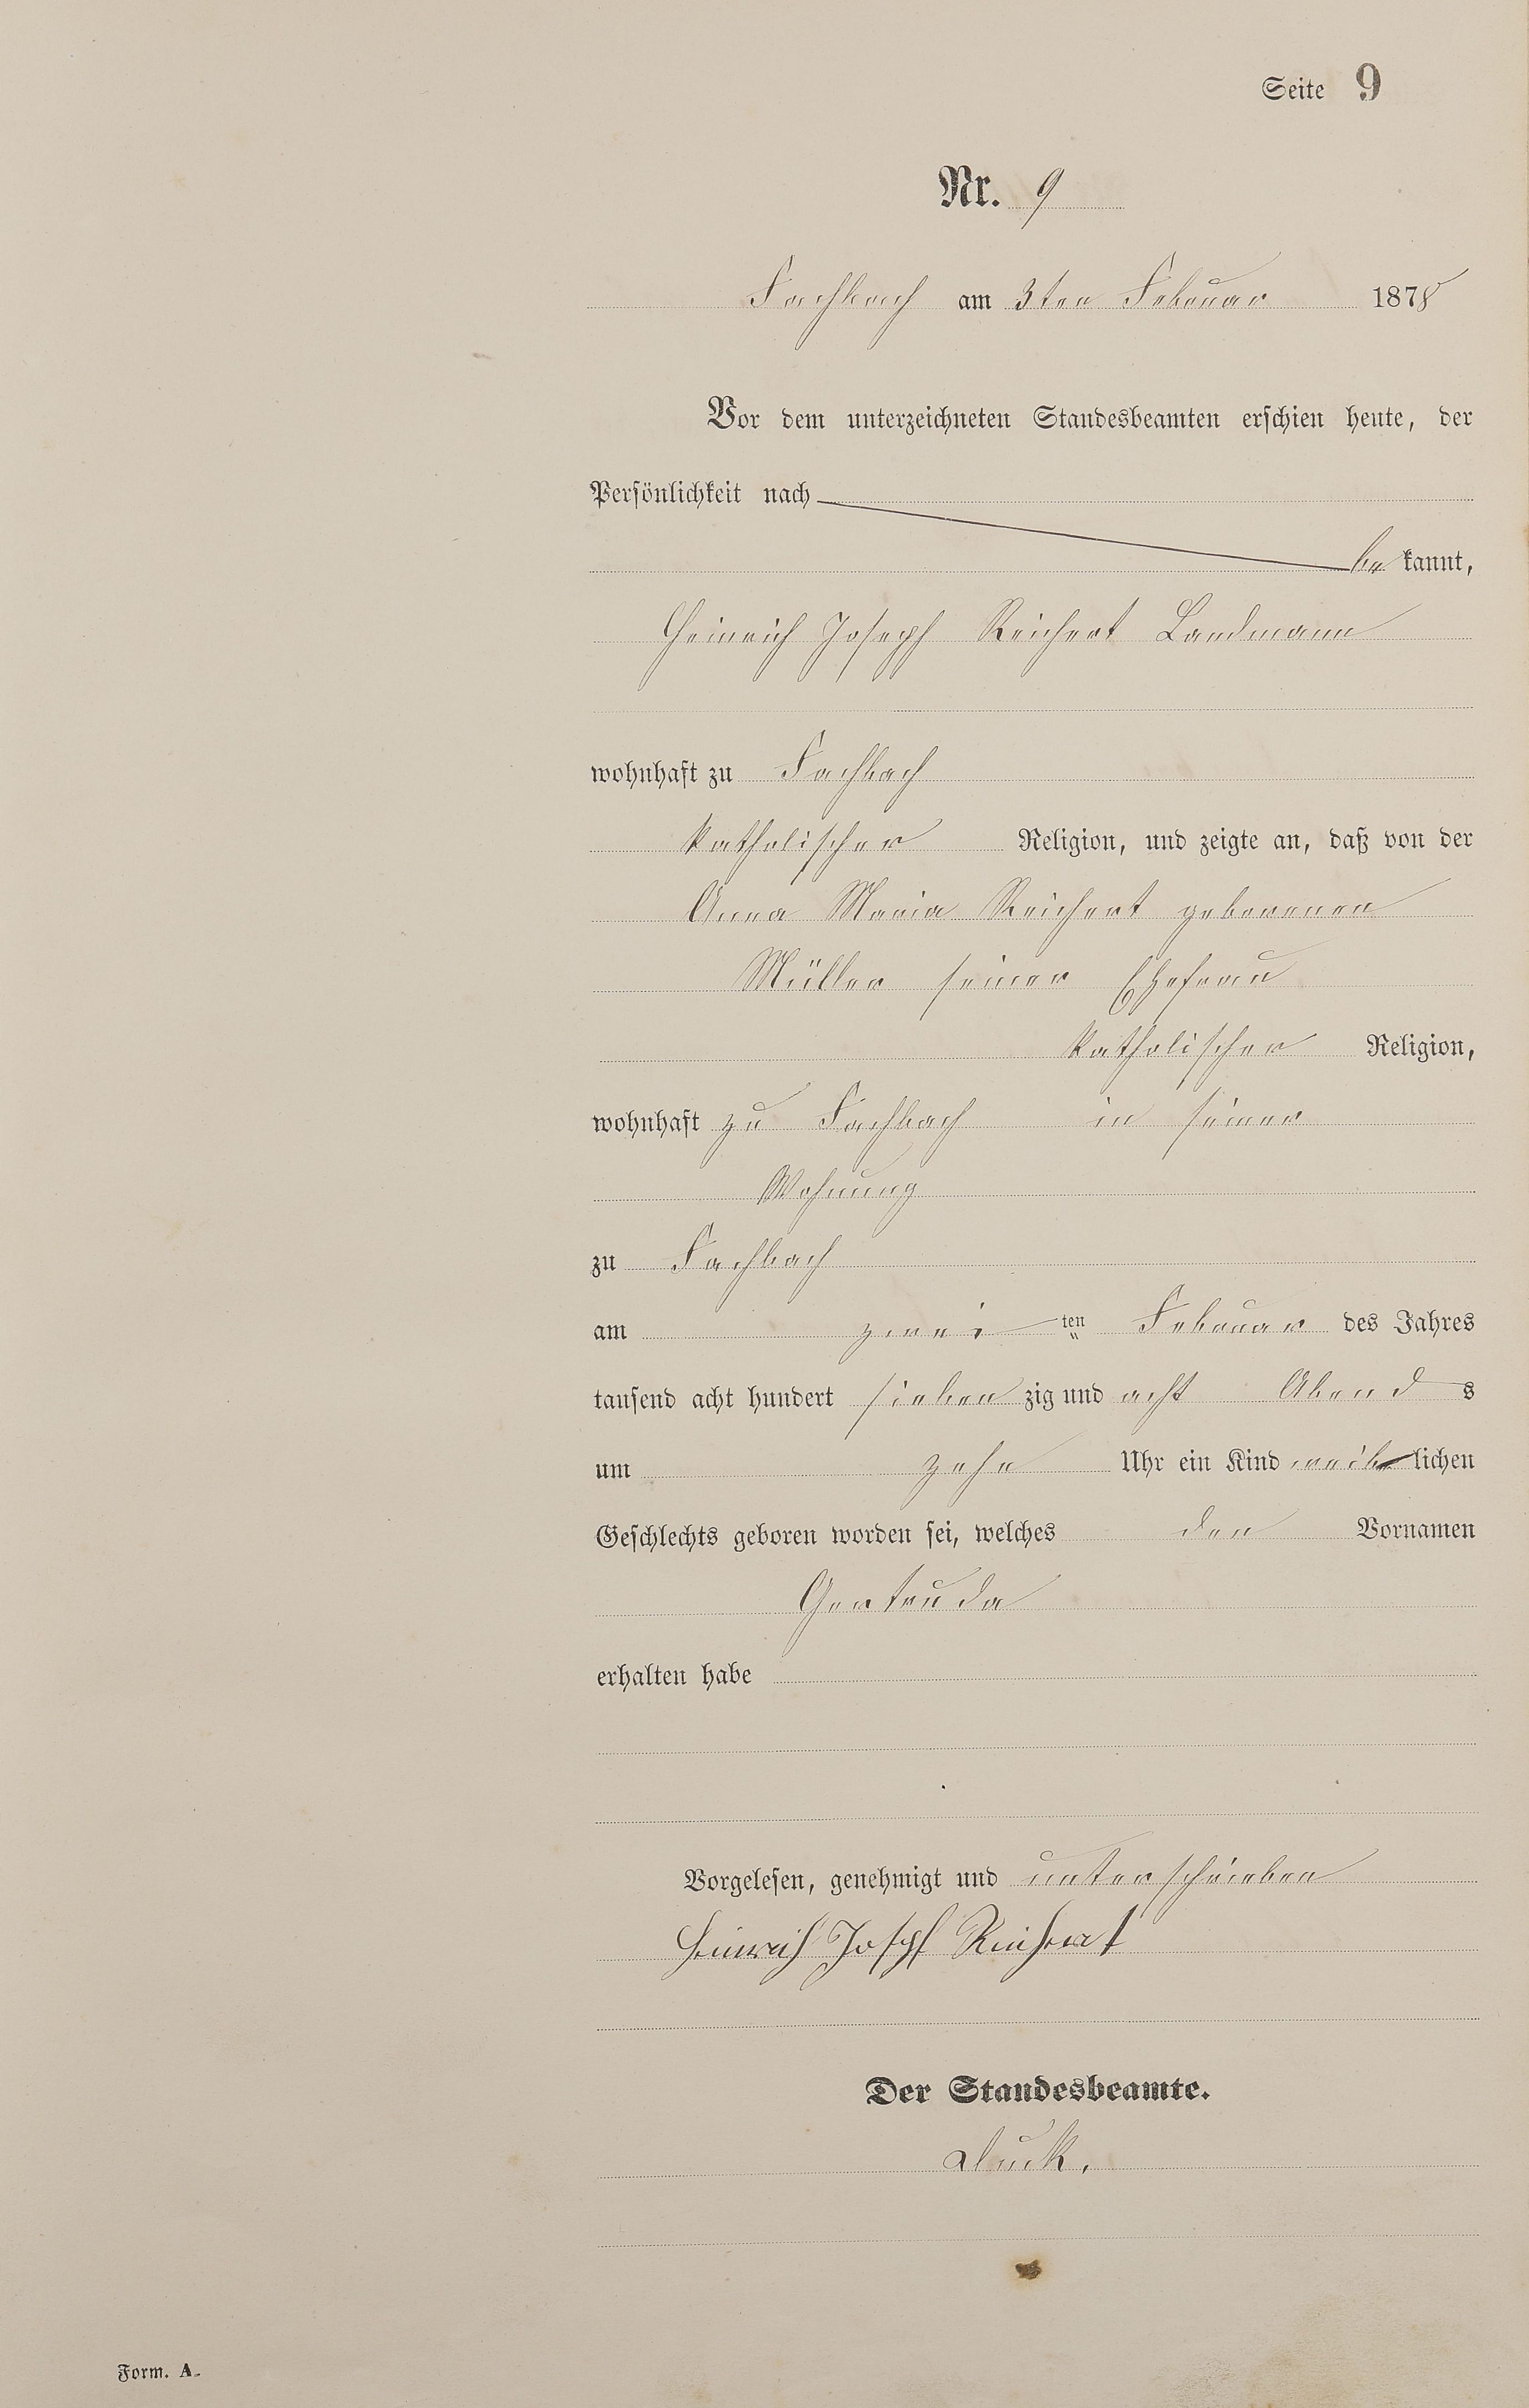 Seite 9
Nr. 9
Fachbach am 3ten Februar 1878
Vor dem unterzeichneten Standesbeamten erschien heute, der
Persönlichkeit nach
be kannt,
Heinrich Joseph Reichert Landmann
wohnhaft zu Fachbach
katholischer Religion, und zeigte an, daß von der
Anna Maria Reichert geborenen
Müller seiner Ehefrau
katholischer Religion,
wohnhaft zu Fachbach in seiner
Wohnung
zu Fachbach
am zwei ten Februar des Jahres
tausend acht hundert sieben zig und acht Abend s
um zehn Uhr ein Kind weib lichen
Geschlechts geboren worden sei, welches den Vornamen
Gertruda
erhalten habe
Vorgelesen, genehmigt und unterschrieben
Heinrich Joseph Reichert
Der Standesbeamte.
Form. A.